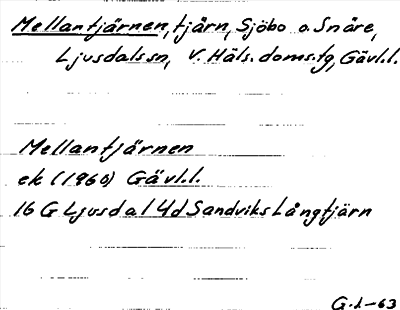 Mellantjärnen, tjärn, Sjöbo o. Snåre,
Ljusdals sn, V. Häls. doms.tg, Gävl.l.
Mellantjärnen
ek (1960) Gävl.l.
16 G Ljusdal 4d Sandviks Långtjärn
G.L-63